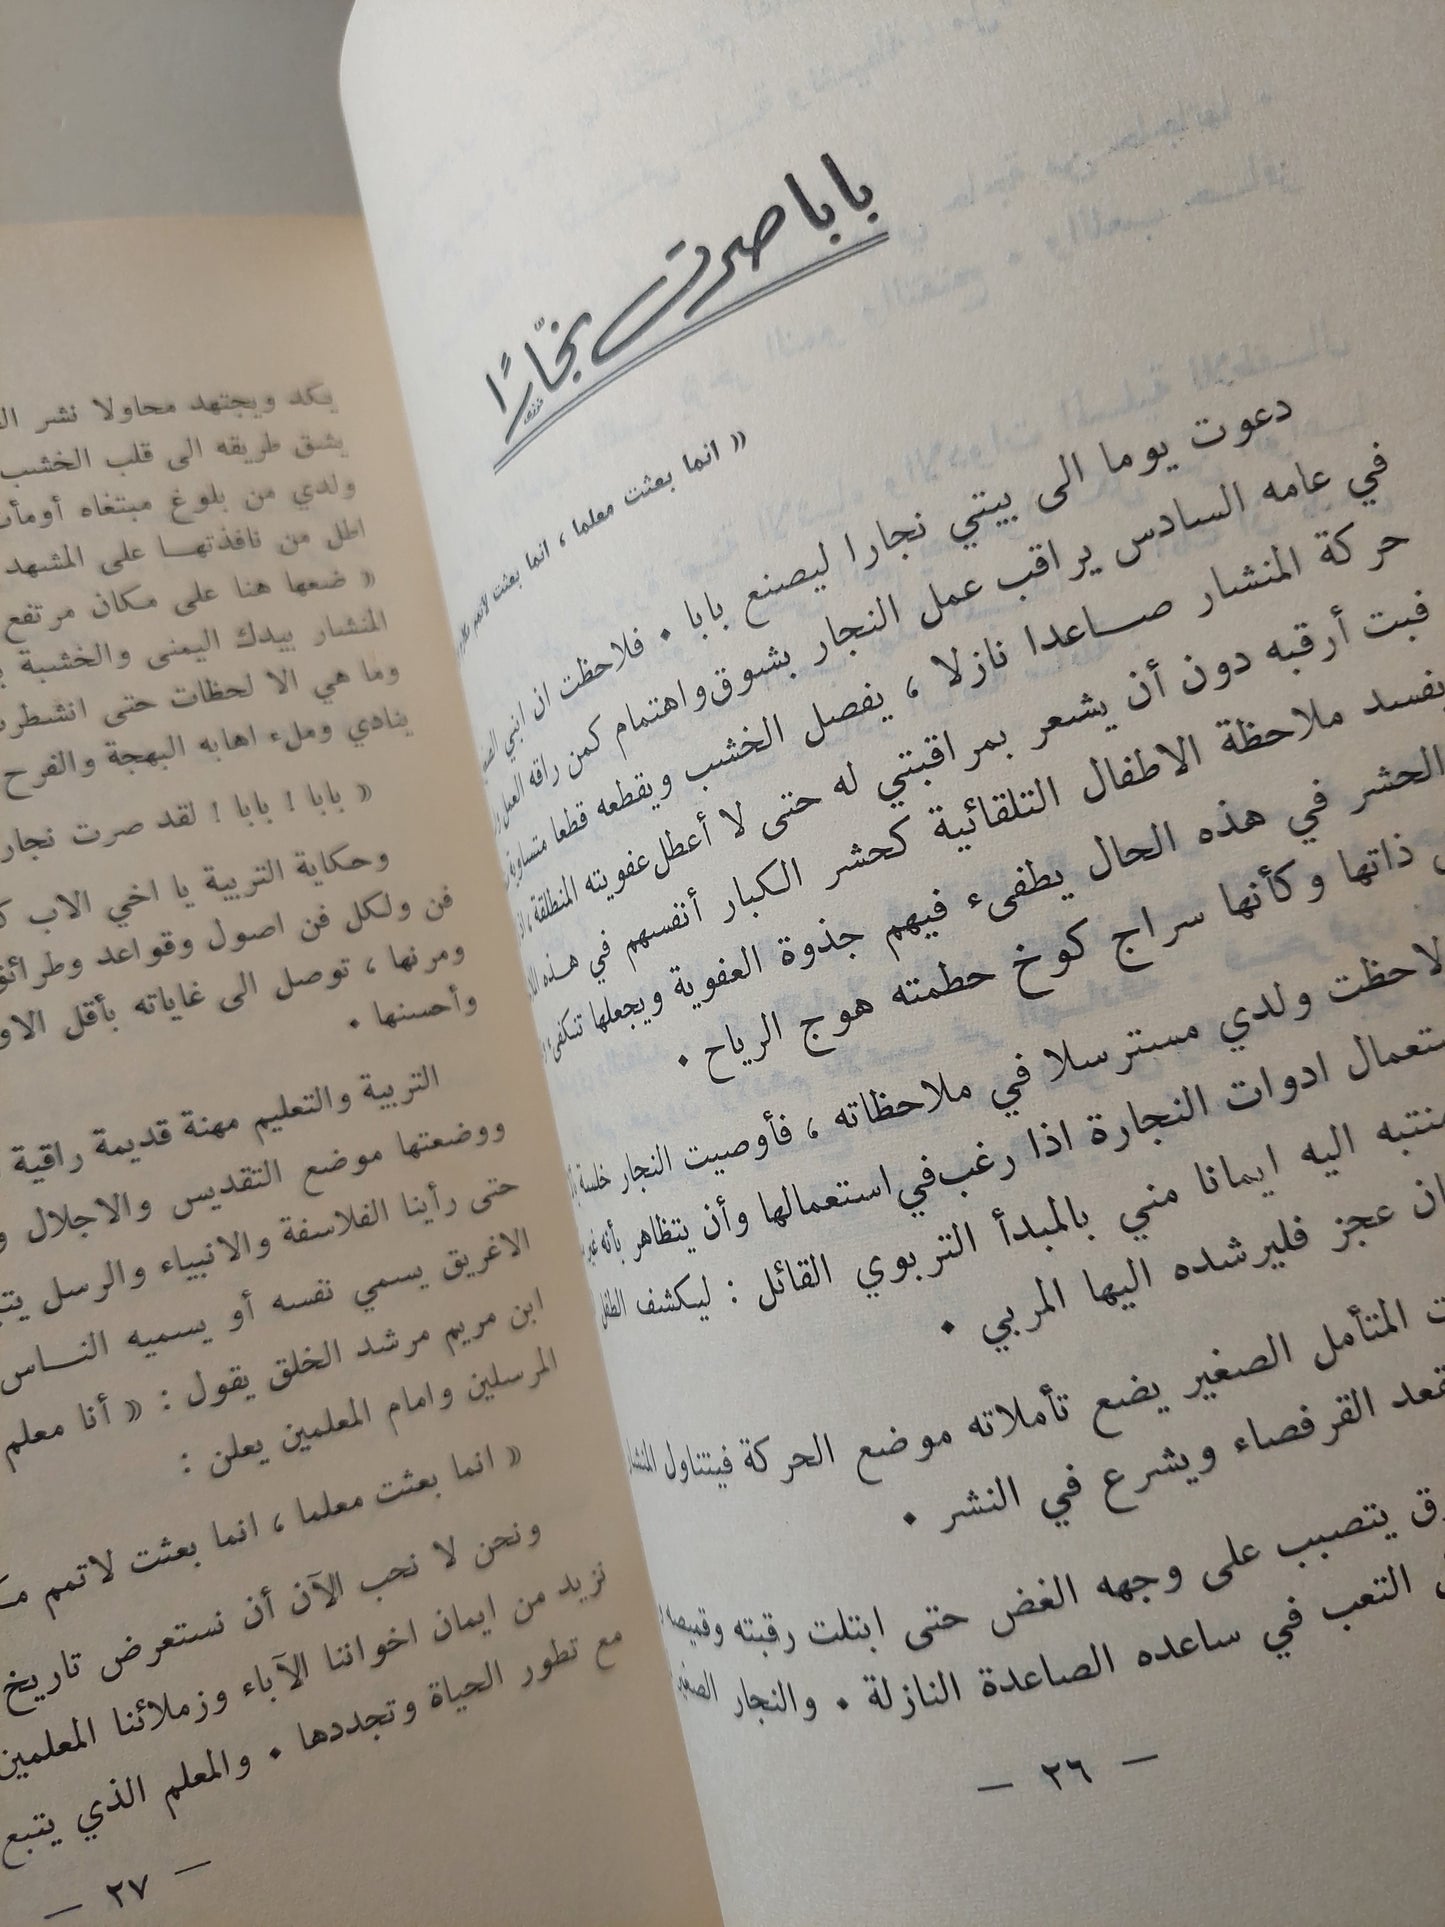 بابا صرت نجّارًا
« انما بعثت معلما ، انما بعثت لاتمم مكارم
دعوت يوما الى بيتي نجارا ليصنع بابا . فلاحظت ان ابني
في عامه السادس يراقب عمل النجار بشوق واهتمام كمن راقه العمل
حركة المنشار صـــاعدا نازلا ، يفصل الخشب ويقطعه قطعا متساوية
فبت أرقبه دون أن يشعر بمراقبتي له حتى لا أعطل عفويته المنطلقة ،
يفسد ملاحظة الاطفال التلقائية كحشر الكبار أنفسهم في هــذه
الحشر في هذه الحال يطفىء فيهم جذوة العفوية ويجعلها تنكفىء
ذاتها وكأنها سراج كوخ حطمته هوج الرياح .
لاحظت ولدي مسترسلا في ملاحظاته ، فأوصيت النجار خلسة
ستعمال ادوات النجارة اذا رغب في استعمالها وأن يتظاهر بأنه غير
منتبه اليه ايمانا مني بالمبدأ التربوي القائل : ليكشف الطفل
ان عجز فليرشده اليها المربي .
المتأمل الصغير يضع تأملاته موضع الحركة فيتناول المنشار
قعد القرفصاء ويشرع في النشر .
رق يتصبب على وجهه الغض حتى ابتلت رقبته وقميصه
التعب في ساعده الصاعدة النازلة . والنجار الصغير
— ٢٦ —
يكد ويجتهد محاولا نشر
يشق طريقه الى قلب الخشب
ولدي من بلوغ مبتغاه أومأت
اطل من نافذتهــا على المشهد
« ضعها هنا على مكان مرتفع
المنشار بيدك اليمنى والخشبة
وما هي الا لحظات حتى انشطرت
ينادي وملء اهابه البهجة والفرح
« بابا ! بابا ! لقد صرت نجار
وحكاية التربية يا اخي الاب
فن ولكل فن اصول وقواعد وطرائق
ومرنها ، توصل الى غاياته بأقل
وأحسنها .
التربية والتعليم مهنة قديمة راقية
ووضعتها موضع التقديس والاجلال
حتى رأينا الفلاسفة والانبياء والرسل
الاغريق يسمي نفسه أو يسميه النــاس
ابن مريم مرشد الخلق يقول : « أنا معلم
المرسلين وامام المعلمين يعلن :
« انما بعثت معلما ، انما بعثت لاتمم
ونحن لا نحب الآن أن نستعرض تاريخ
نزيد من ايمان اخواننا الآباء وزملائنا المعلمين
مع تطور الحياة وتجددها . والمعلم الذي يتبع
— ٢٧ —